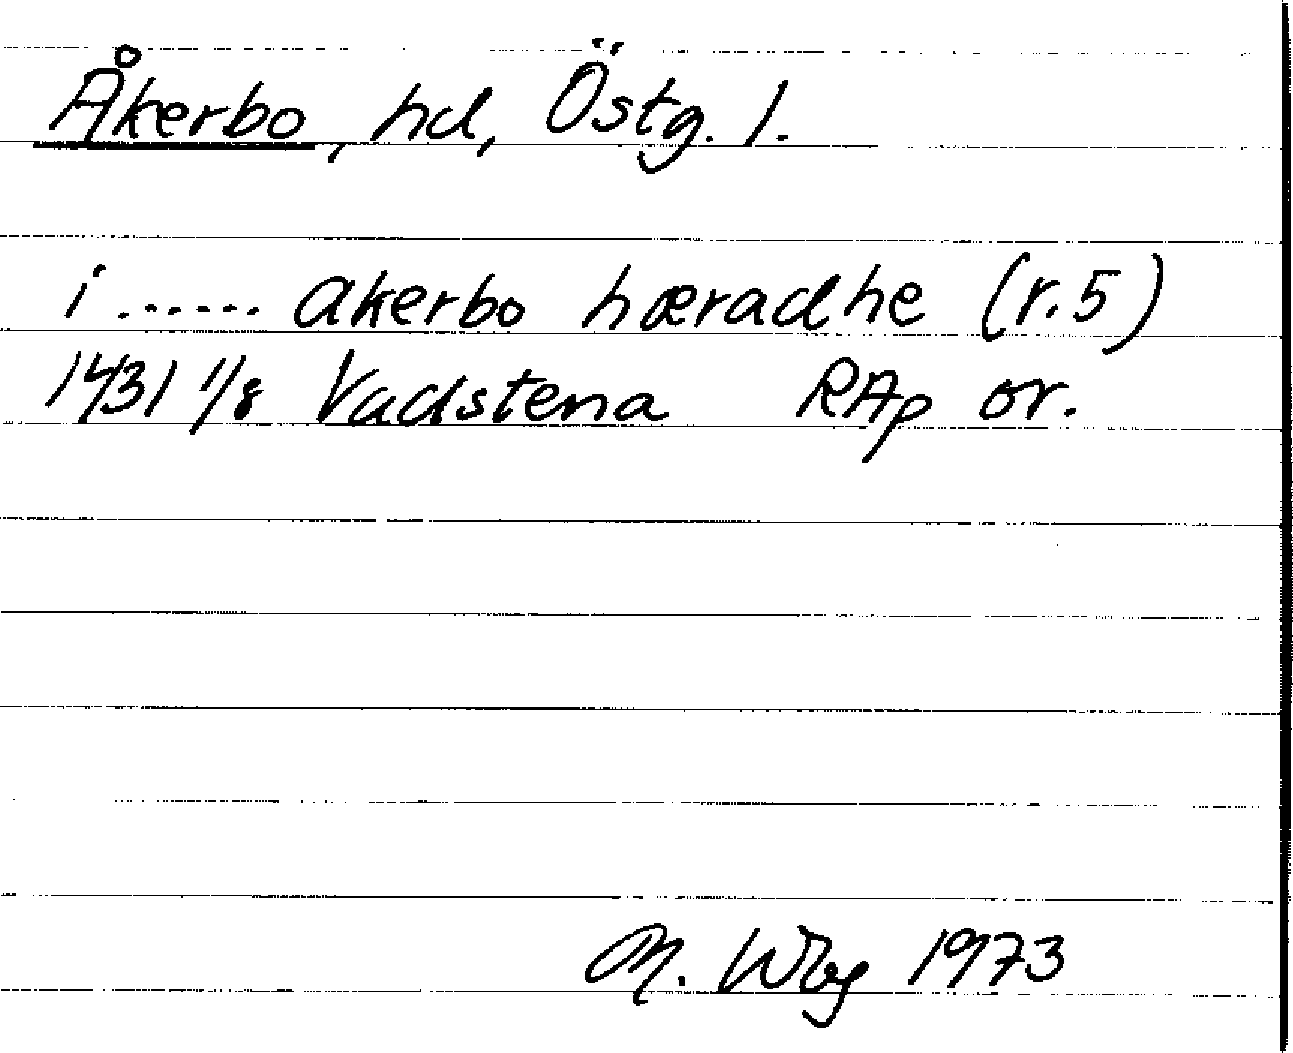 Åkerbo, hd, Östg. l.
i ...... akerbo hæradhe (r. 5)
1431 1/8 Vadstena RAp or.
M. Wbg 1973